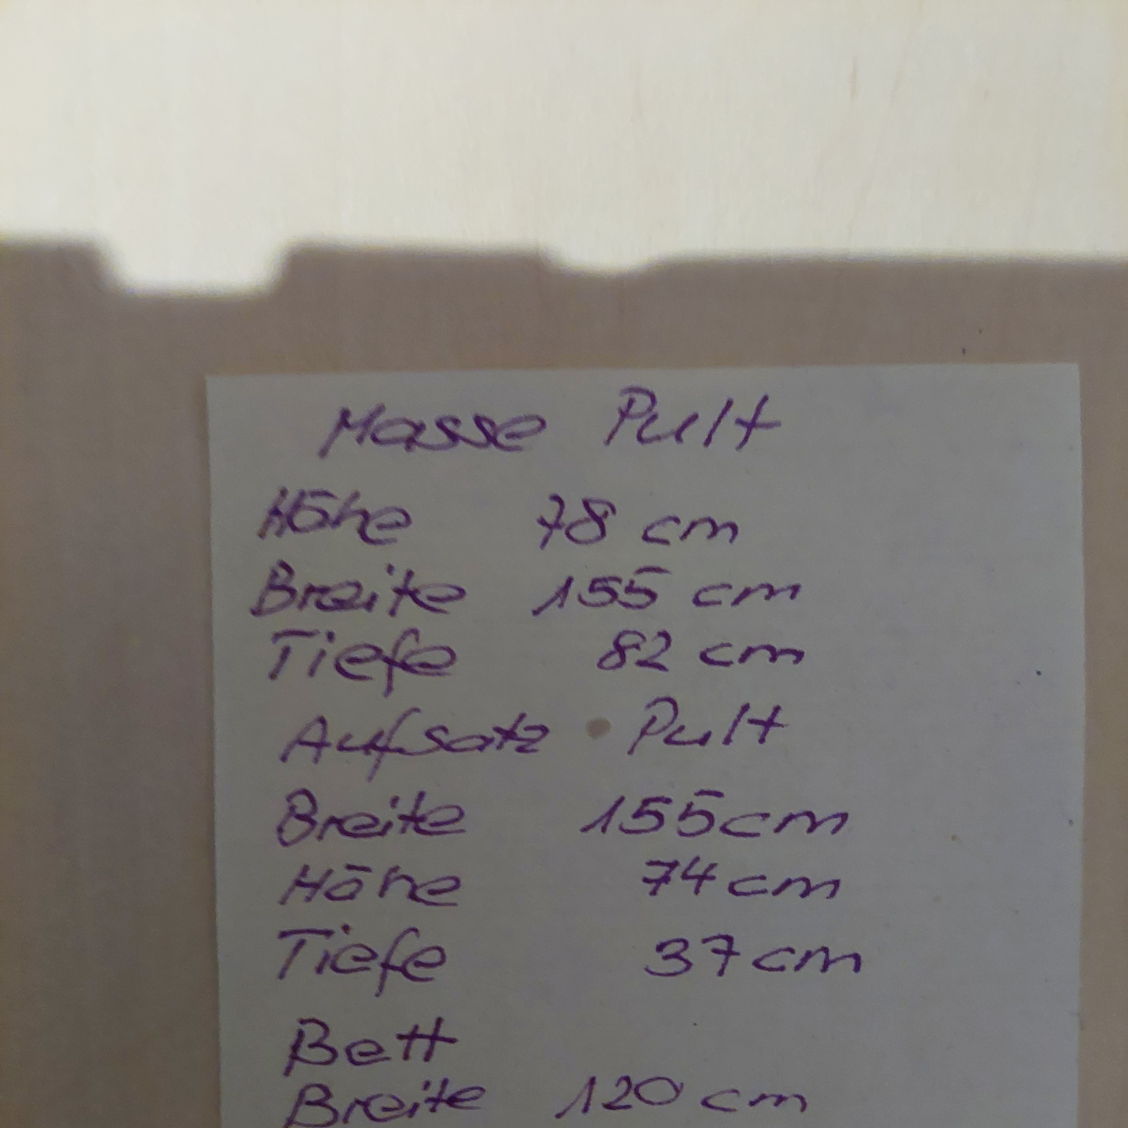 Masse Pult
Höhe 78 cm
Breite 155 cm
Tiefe 82 cm
Aufsatz Pult
Breite 155 cm
Höhe 74 cm
Tiefe 37 cm
Bett
Breite 120 cm